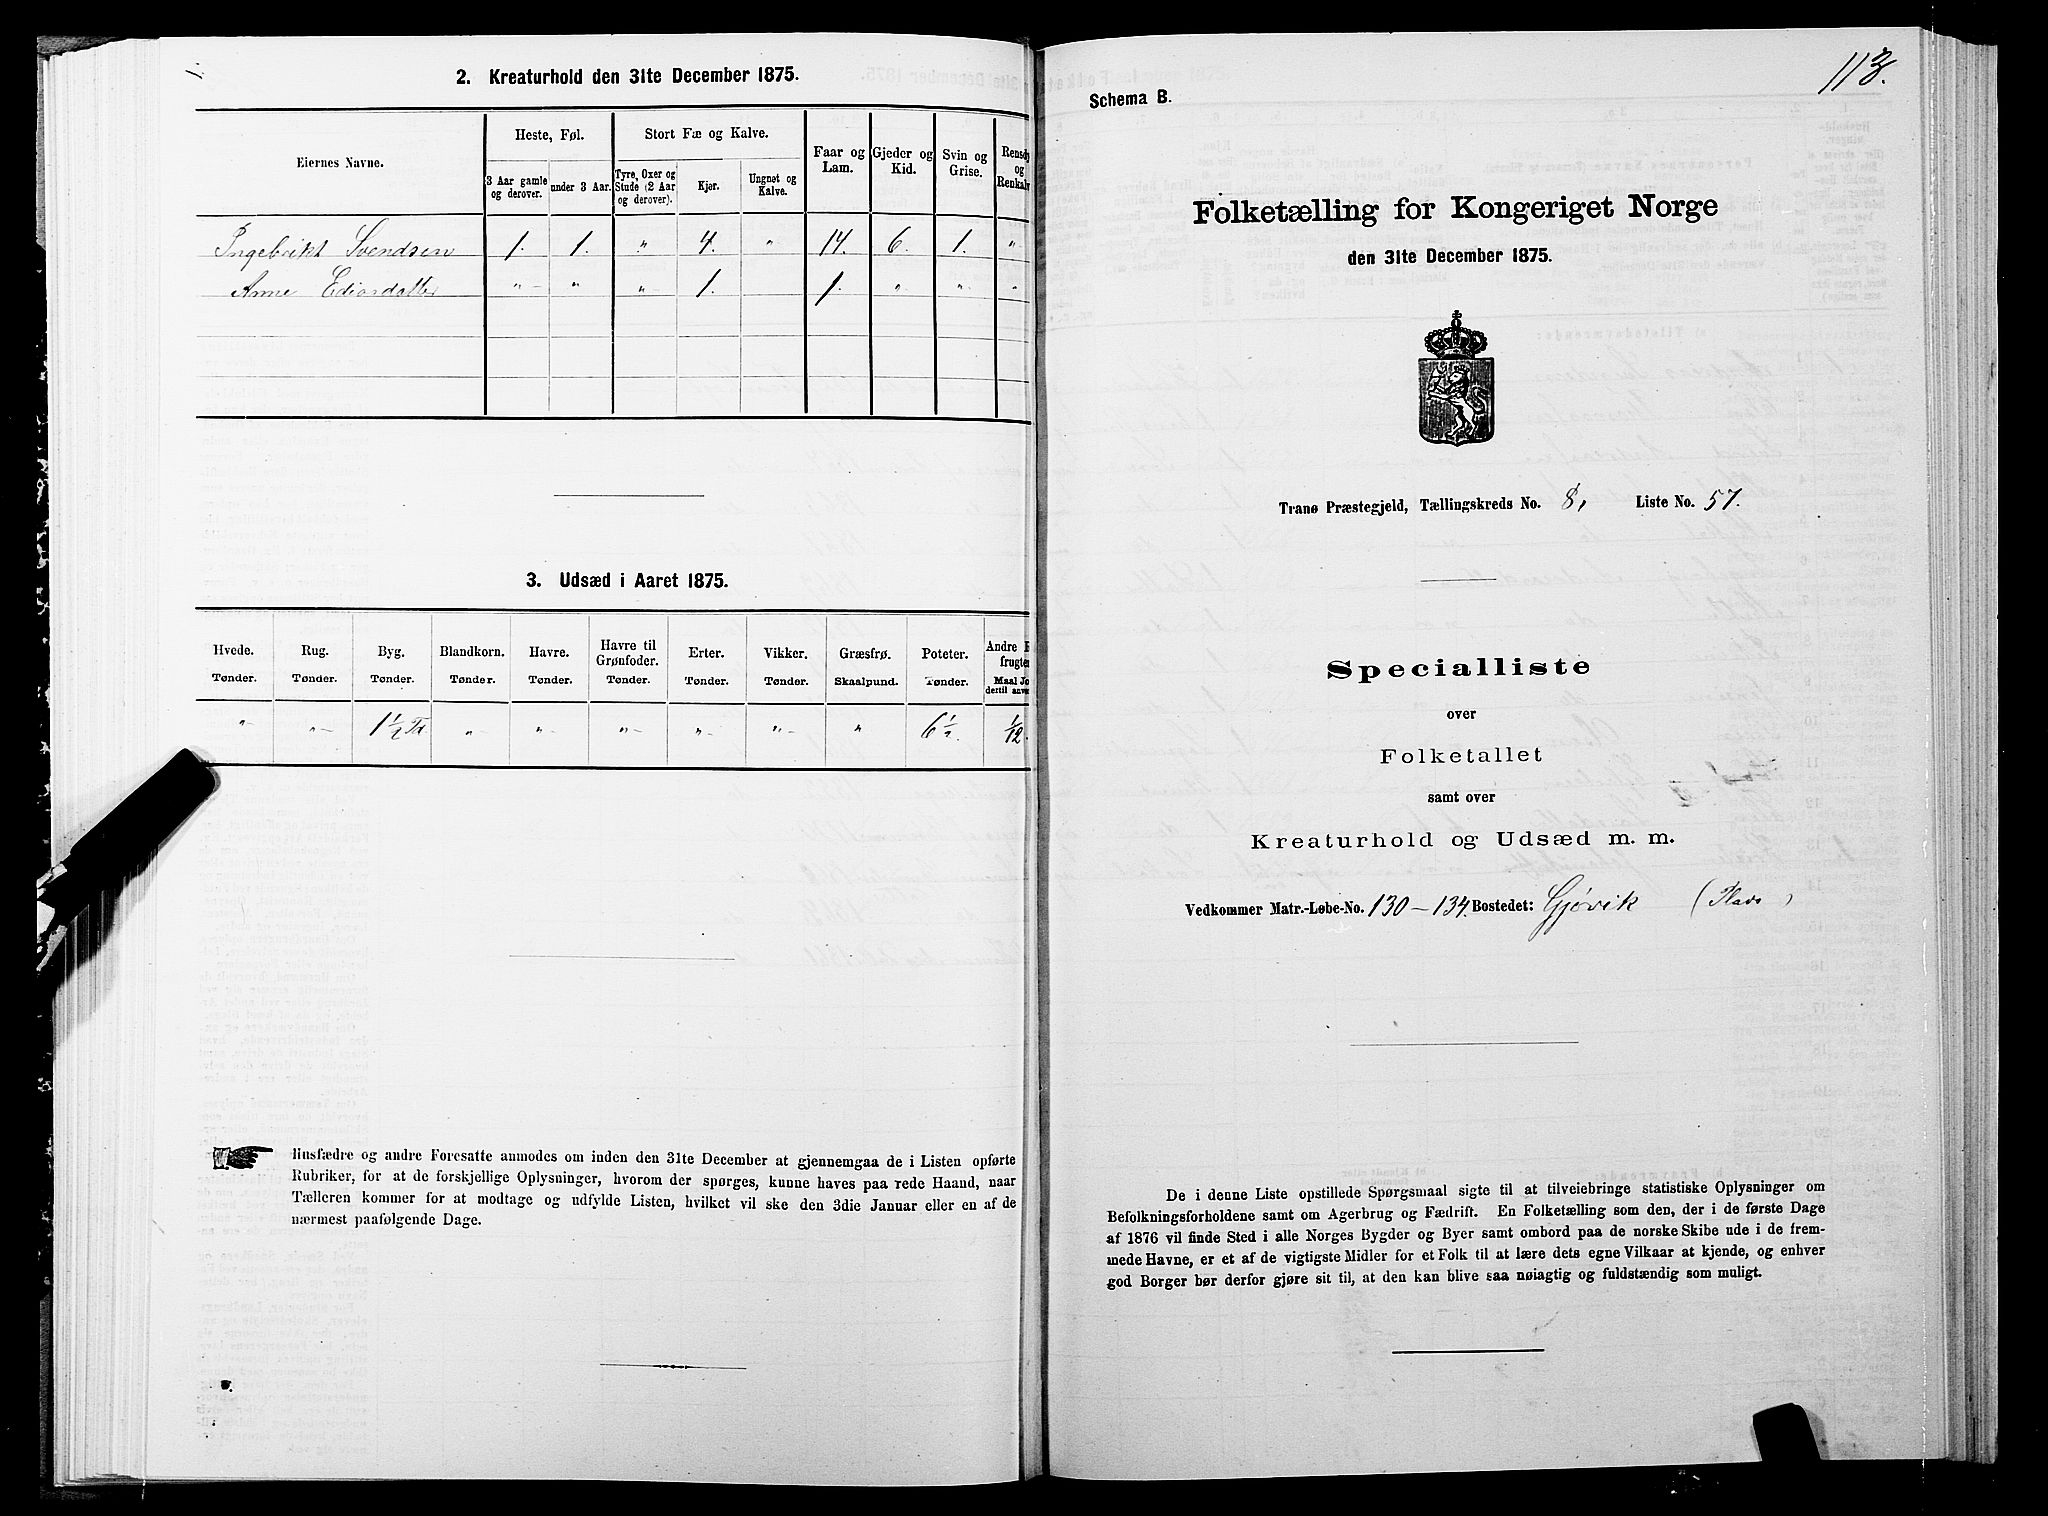 2. Kreaturhold den 31te December 1875.
Eiernes Navne.
Heste, Føl.
Stort Fæ og Kalve.
Faar og Lam.
Gjeder og Kid.
Svin og Grise.
Rensdy
og
Renkalv
3 Aar gamle og derover.
under 3 Aar.
Tyre, Oxer og Stude (2 Aar og derover).
Kjør.
Ungnøt og Kalve.
Ingebrikt Svendsen 1. 1. " 4. " 14. 6. 1. "
Anne " " " 1. 1. " " "
3. Udsæd i Aaret 1875.
Hvede. Rug. Byg. Blandkorn. Havre. Havre til Grønfoder. Erter. Vikker. Græsfrø. Poteter. Andre
frugte
Tønder. Tønder. Tønder. Tønder. Tønder. Tønder. Tønder. Tønder. Skaalpund. Tønder. Maal Jo
dertil anve
" " 1 1/2 Td " " " " " " 6 1/2. 1/12.
Husfædre og andre Foresatte anmodes om inden den 31te December at gjennemgaa de i Listen opførte
Rubriker, for at de forskjellige Oplysninger, hvorom der spørges, kunne haves paa rede Haand, naar
Tælleren kommer for at modtage og udfylde Listen, hvilket vil ske den 3die Januar eller en af de
nærmest paafølgende Dage.
113.
Schema B.
Folketælling for Kongeriget Norge
den 31te December 1875.
Tranø Præstegjeld, Tællingskreds No. 8, Liste No. 57.
Specialliste
over
Folketallet
samt over
Kreaturhold og Udsæd m. m.
Vedkommer Matr.-Løbe-No. 130-134. Bostedet: Gjövik (Plads)
De i denne Liste opstillede Spørgsmaal sigte til at tilveiebringe statistiske Oplysninger om
Befolkningsforholdene samt om Agerbrug og Fædrift. En Folketælling som den, der i de første Dage
af 1876 vil finde Sted i alle Norges Bygder og Byer samt ombord paa de norske Skibe ude i de frem-
mede Havne, er et af de vigtigste Midler for et Folk til at lære dets egne Vilkaar at kjende, og enhver
god Borger bør derfor gjøre sit til, at den kan blive saa nøiagtig og fuldstændig som muligt.